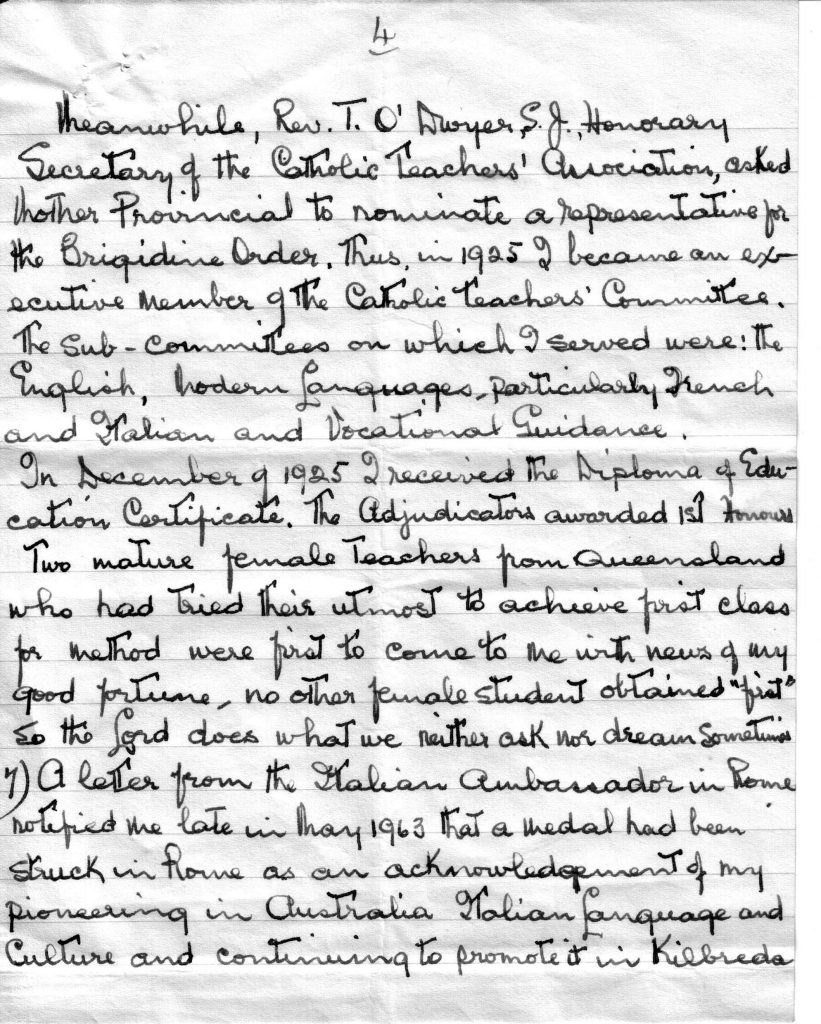 4
Meanwhile, Rev. T. O' Dwyer, S.J., Honorary
Secretary of the Catholic Teachers' Association, asked
Mother Provincial to nominate a representative for
the Brigidine Order. Thus, in 1925 I became an ex-
ecutive member of the Catholic Teachers' Committee.
The Sub-committees on which I served were: the
English, Modern Languages, particularly French
and Italian and Vocational Guidance.
In December of 1925 I received the Diploma of Edu-
cation Certificate. The Adjudicators awarded 1st Honours
Two mature female Teachers from Queensland
who had tried their utmost to achieve first class
for method were first to come to me with news of my
good fortune, no other female student obtained "first"
So the Lord does what we neither ask nor dream sometimes
7) A letter from the Italian Ambassador in Rome
notified me late in May 1963 that a medal had been
struck in Rome as an acknowledgement of my
pioneering in Australia Italian Language and
Culture and continuing to promote it in Kilbreda